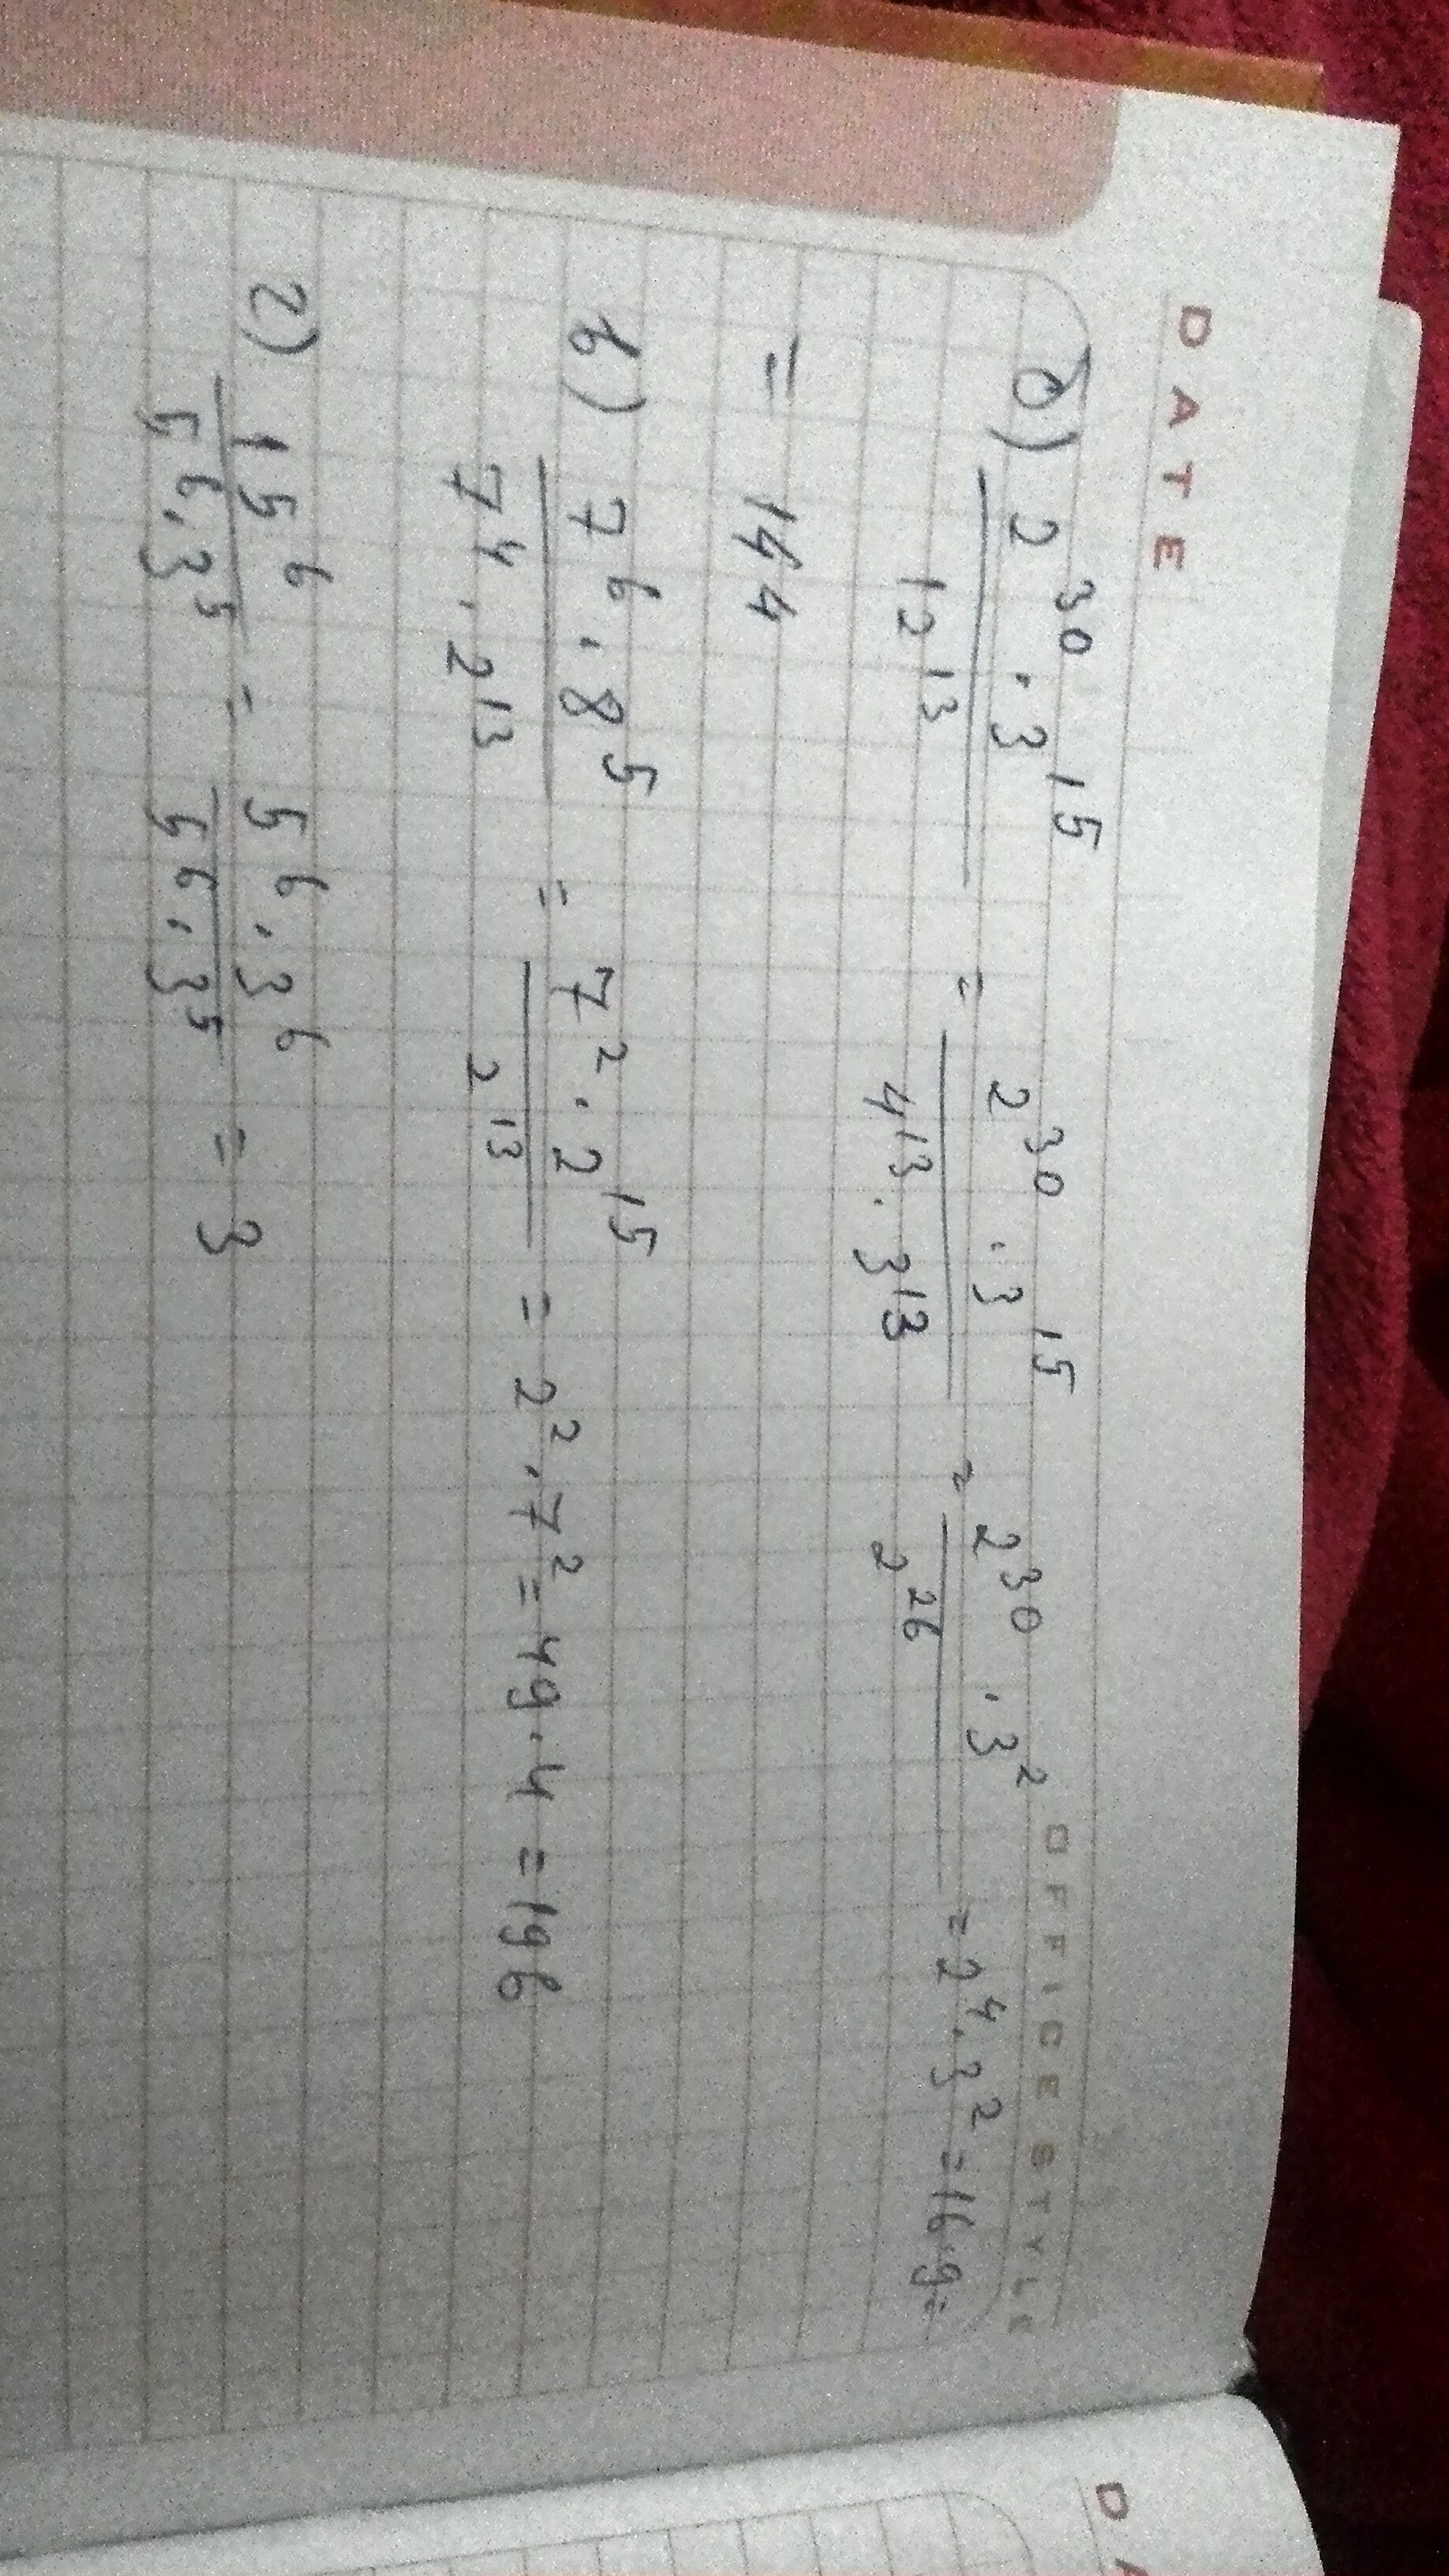 DATE
OFFICE STYLE
б) 2^30 · 3^15 / 12^13 = 2^30 · 3^15 / 4^13 · 3^13 = 2^30 · 3^2 / 2^26 = 2^4 · 3^2 = 16 · 9 =
= 144
в) 7^6 · 8^5 / 7^4 · 2^13 = 7^2 · 2^15 / 2^13 = 2^2 · 7^2 = 49 · 4 = 196
г) 15^6 / 5^6 · 3^5 = 5^6 · 3^6 / 5^6 · 3^5 = 3
DA